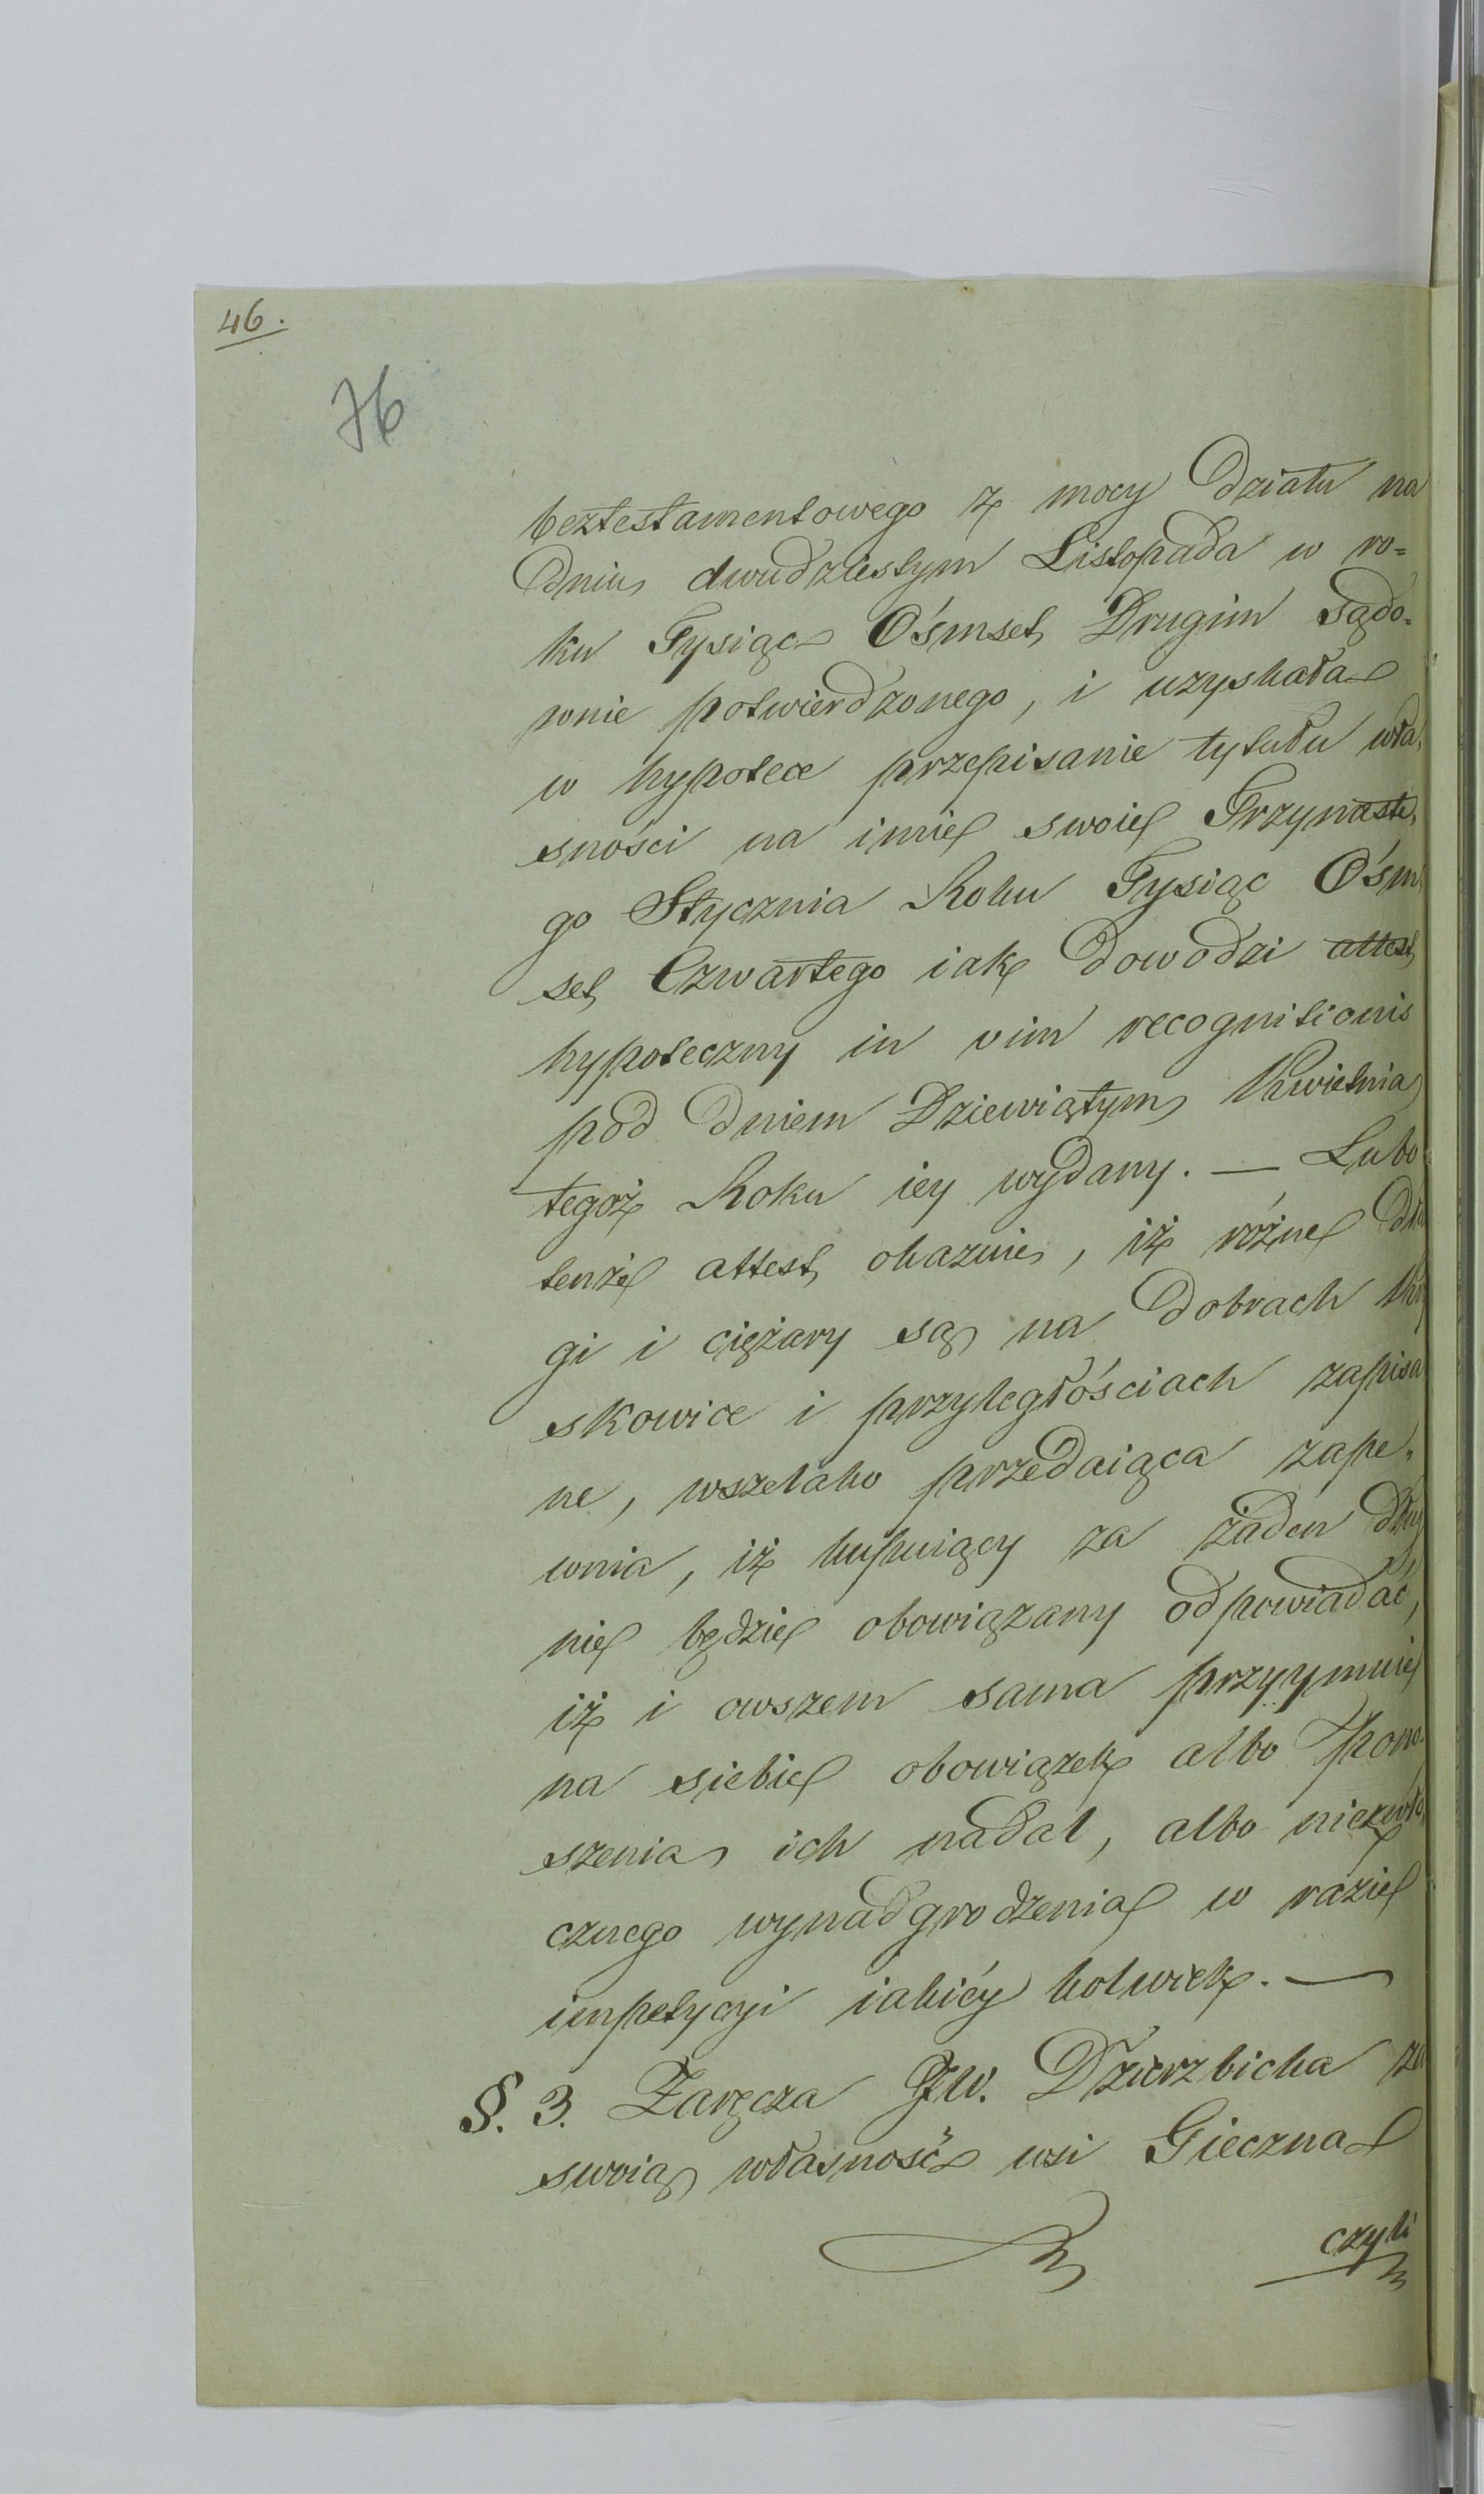 46.
76
beztestamentowego z mocy Działu na
Dniu dwudziestym Listopada w ro=
ku Tysiąc Ośmset Drugim sądo=
wnie potwierdzonego, i uzyskała
w hypotece przepisanie tytułu wła,
sności na imie swoie Trzynaste,
go Stycznia Roku Tysiąc Ośm,
set Czwartego iak Dowodzi attest
hypoteczny in vim recognitionis
pod Dniem Dziewiątym Kwietnia
tegoż Roku iey wydany. — Lubo
tenże attest okazuie, iż różne Dłu
gi i ciężary są na Dobrach
skowice i przyległościach zapisa
ne, wszelako przedaiąca zape„
wnia, iż kupuiący za żaden dług
nie będzie obowiązany odpowiadać,
iż i owszem sama przyymuie
na siebie obowiązek albo pono,
szenia ich nadal, albo niezwło,
cznego wynadgrodzenia w razie
impetycyi iakićy kolwiek. —
§. 3. Zaręcza JW. Dzierzbicka za
swoią własność wsi Gieczna
czyli